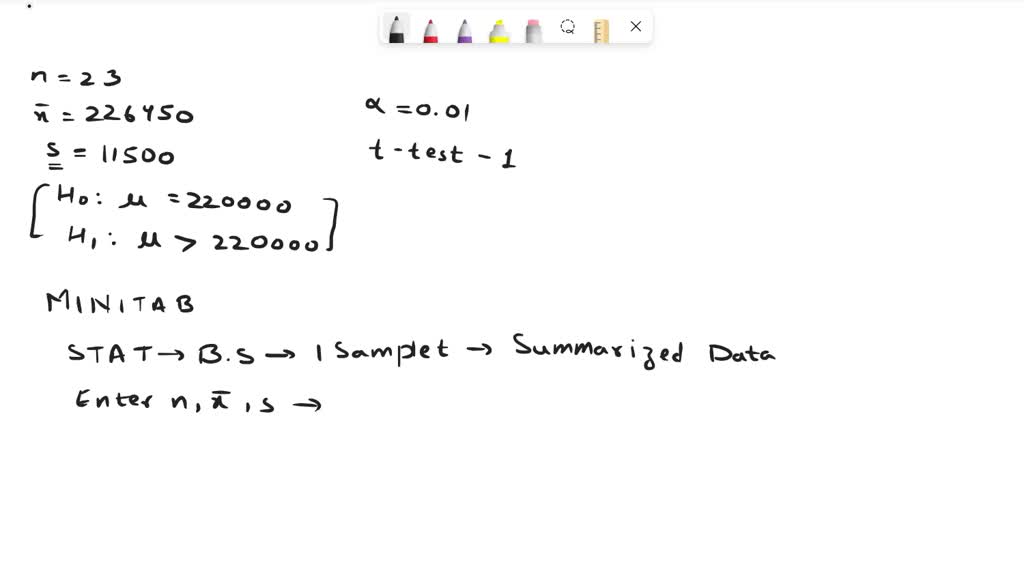 n = 23
x̄ = 226450
s = 11500
α = 0.01
t-test - 1
H₀: μ = 220000
H₁: μ > 220000
MINITAB
STAT → B.S → 1 Sample t → Summarized Data
Enter n, x̄, s →